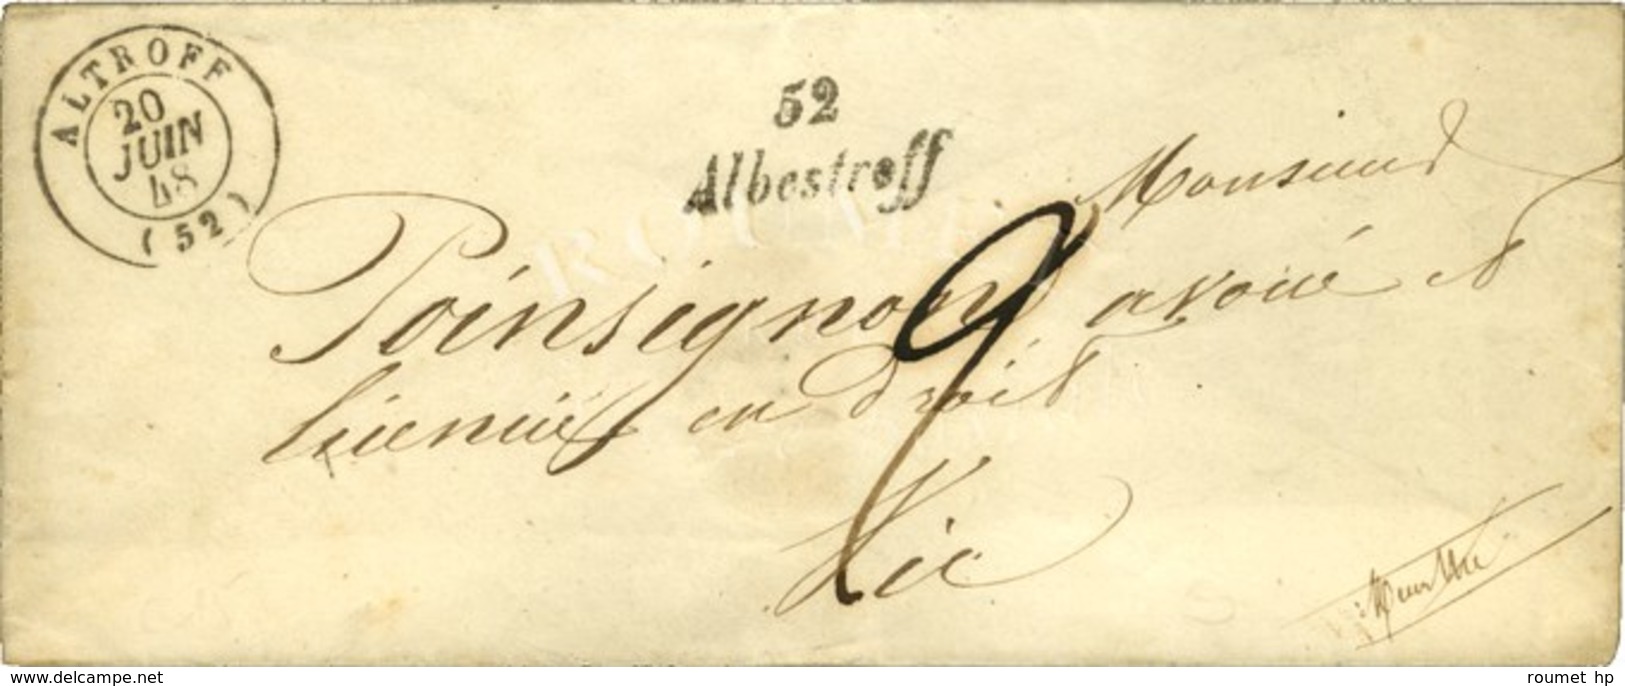 ALTROFF
20
JUIN
48
(52)
52
Albestroff
Monsieur
Poinsignon avoué et
licencié en droit
Vic
Meurthe
9
ROUMET
www.delcampe.net
roumet hp